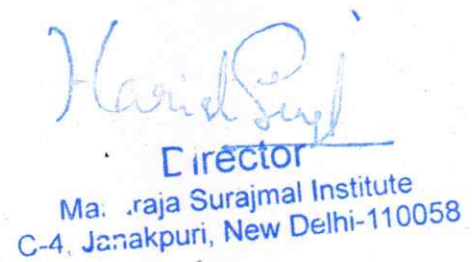 Harish Singh
Director
Maharaja Surajmal Institute
C-4, Janakpuri, New Delhi-110058